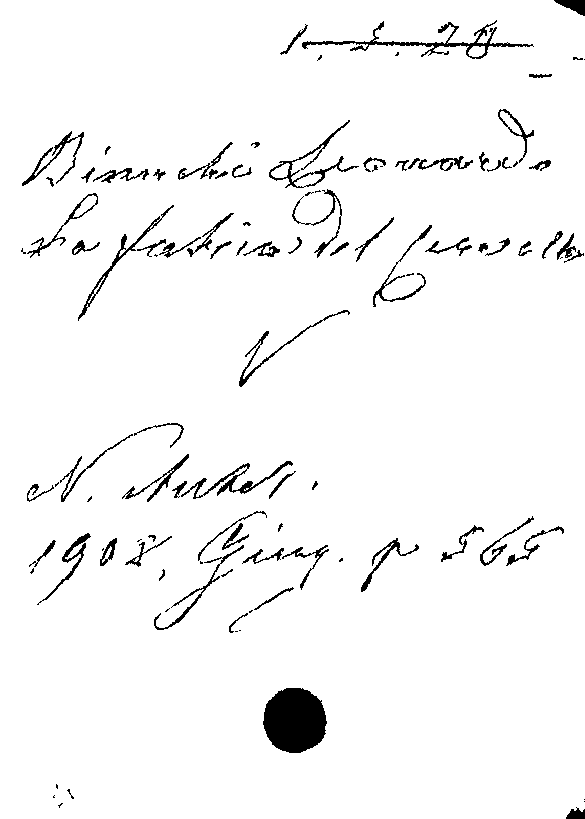 1. 5. 28
Bianchi Leonardo
La fatica del cervello
V
N. Antol.
1908, Giug. p 565